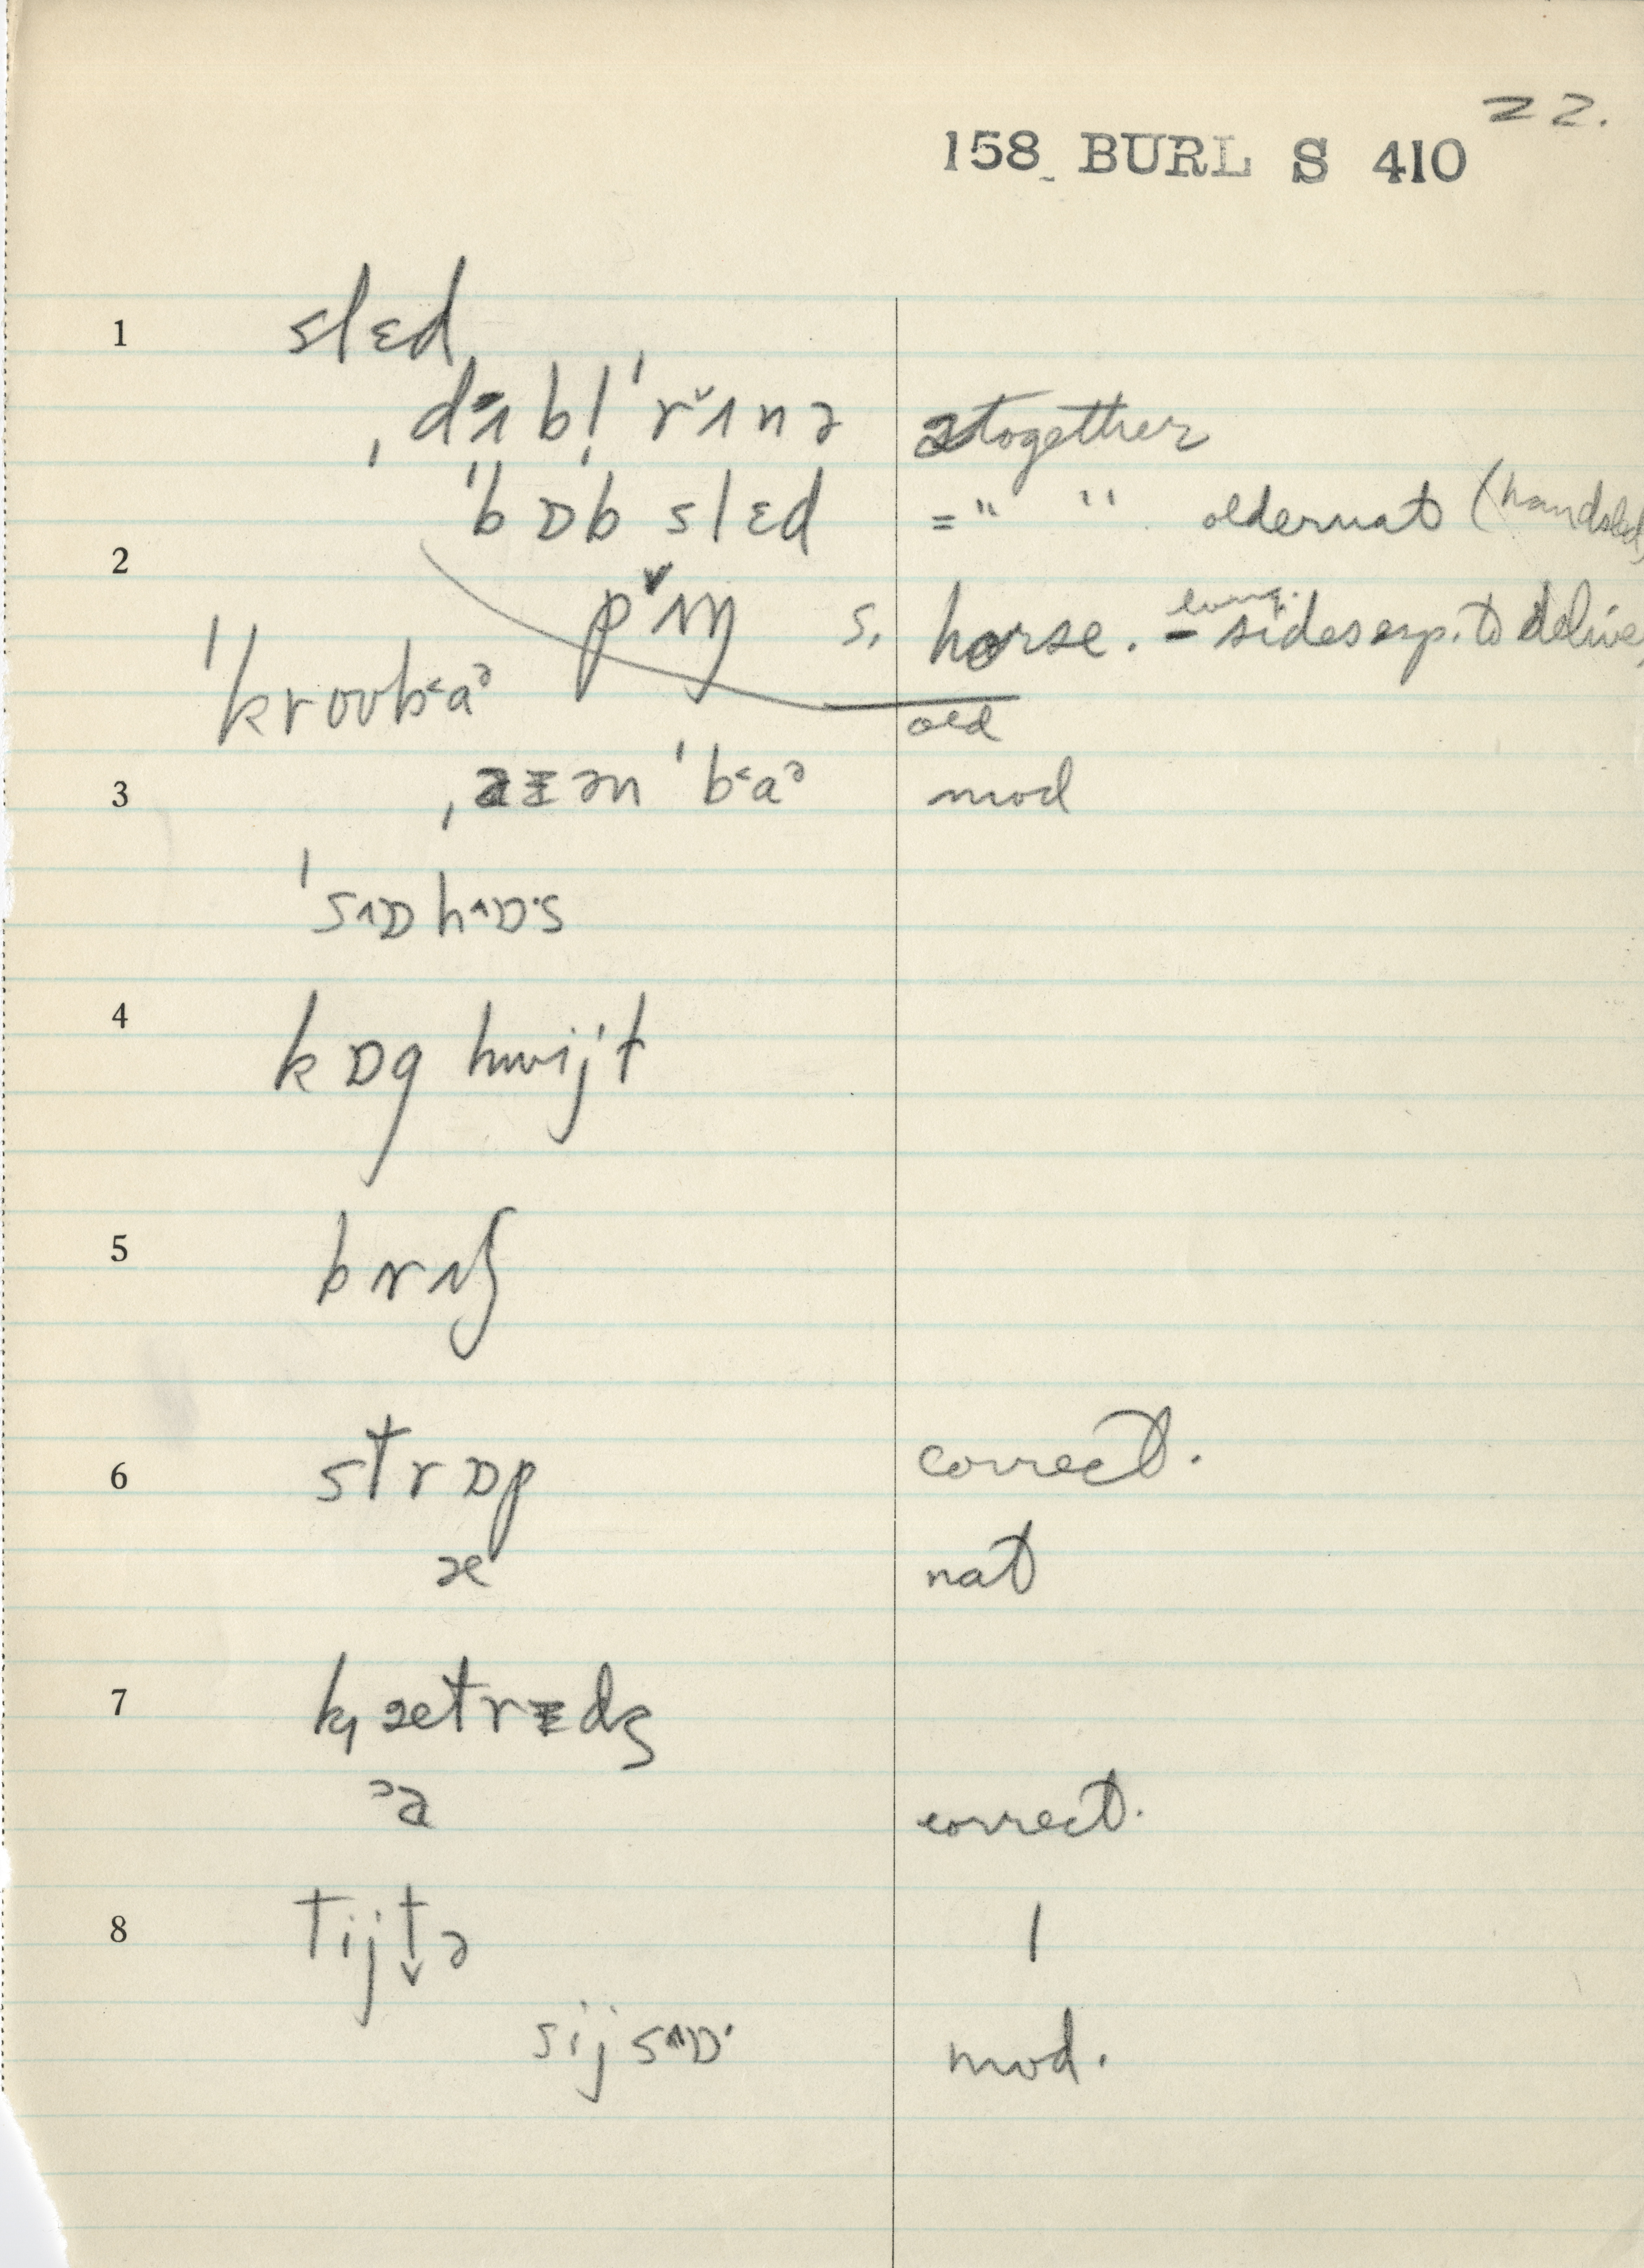 22.
158 BURL S 410
1 slɛd
ˌdʌbl̩ˈrʌnə 2 together
ˈbɒb slɛd = " " older nat (handsled
2 pʌŋ s. horse. – long. sides esp. to delive
ˈkroʊbaᵊ old
3 ˌaɪənˈbaᵊ mod
ˈsɒhɒ·s
4 kɒg hwijt
5 brʌʃ
6 strɒp correct.
æ nat
7 kætrɪdʒ
ᵊa correct.
8 tijtə 1
sijsɒ· mod.